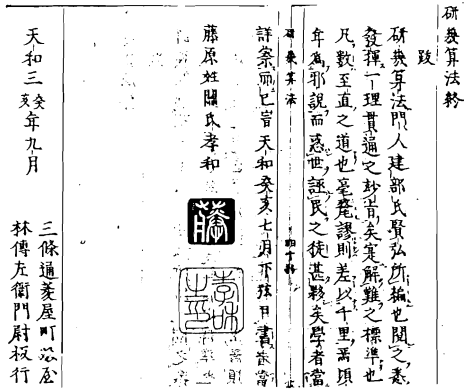 研幾算法終
跋
研幾算法門人建部氏賢弘所編也閲之悉
發揮一理貫通之妙旨矣寔解難之標準也
凡數至直之道也毫釐謬則差以千里焉頃
年為邪說而惑世誣民之徒甚夥矣學者當
研幾算法
詳察而已旹天和癸亥七月下弦日書
藤原姓關氏孝和
藤
孝和之印
天和三癸亥年九月
三條通菱屋町
林傳左衞門尉板行